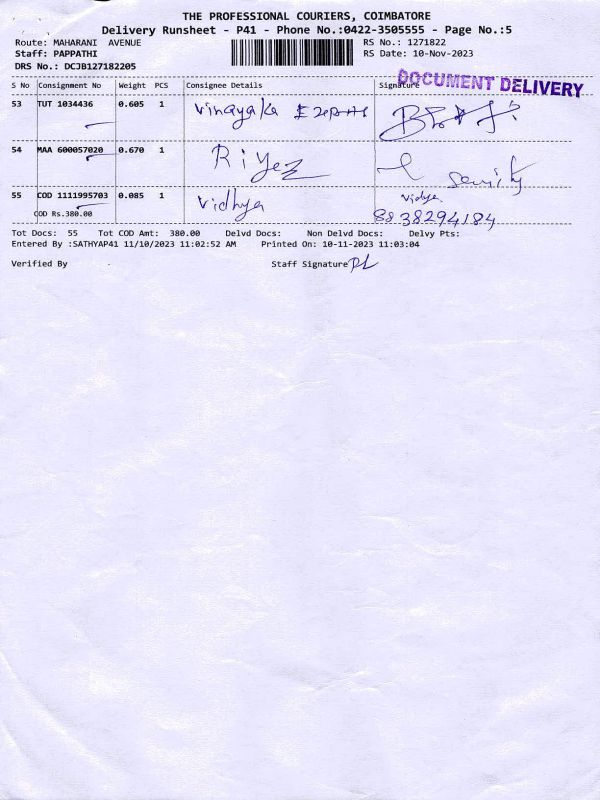 THE PROFESSIONAL COURIERS, COIMBATORE
Delivery Runsheet - P41 - Phone No.:0422-3505555 - Page No.:5
Route: MAHARANI AVENUE RS No.: 1271822
Staff: PAPPATHI RS Date: 10-Nov-2023
DRS No.: DCJB127182205
DOCUMENT DELIVERY
S No Consignment No Weight PCS Consignee Details Signature
53 TUT 1034436 0.605 1 Vinayaka
54 MAA 600057020 0.670 1 Riyez
55 COD 1111995703 0.085 1 Vidhya Vidya
COD Rs.380.00 8838294184
Tot Docs: 55 Tot COD Amt: 380.00 Delvd Docs: Non Delvd Docs: Delvy Pts:
Entered By :SATHYAP41 11/10/2023 11:02:52 AM Printed On: 10-11-2023 11:03:04
Verified By Staff Signature